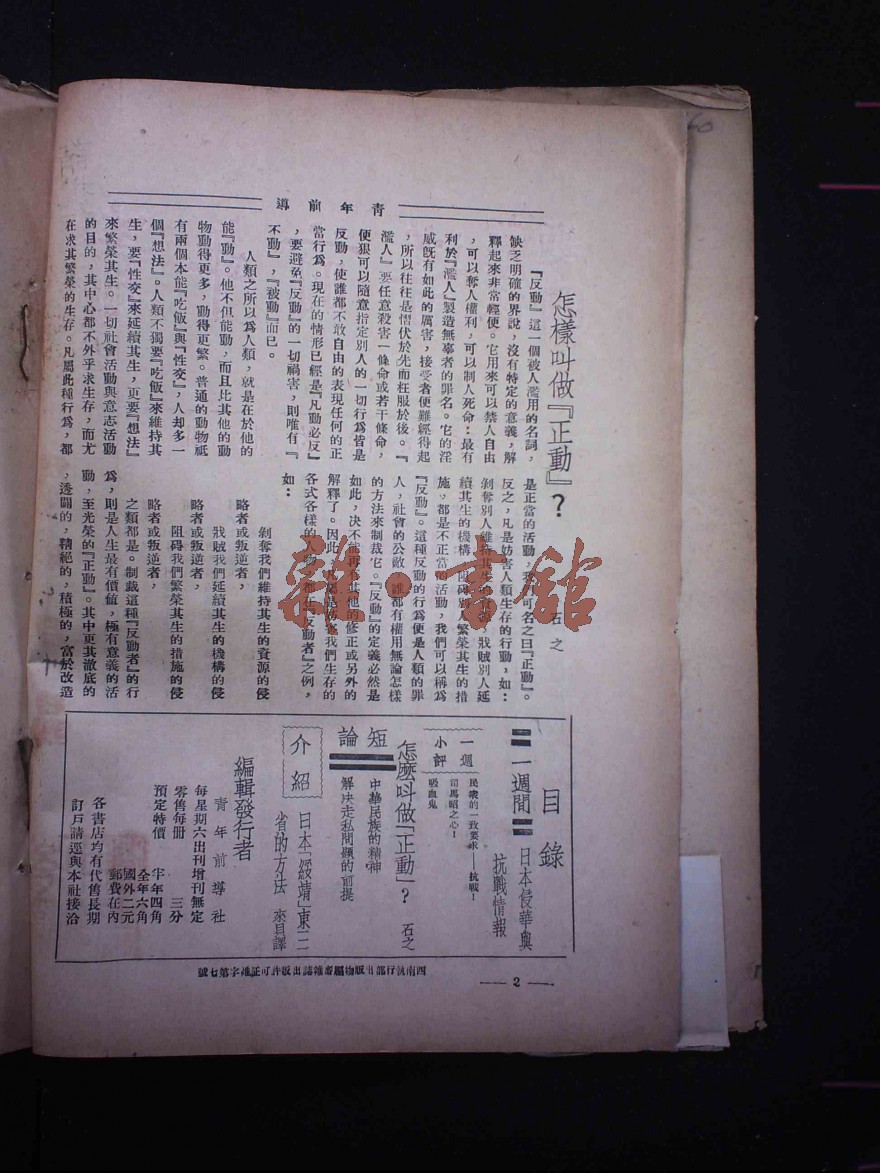 青年前導
怎樣叫做『正動』?
石之
『反動』這一個被人濫用的名詞，
缺乏明確的界說，沒有特定的意義，解
釋起來非常輕便。它用來可以禁人自由
，可以奪人權利，可以制人死命：最有
利於『濫人』製造無辜者的罪名。它的淫
威既有如此的厲害，接受者便難經得起
，所以往往是慴伏於先而枉服於後。『
濫人』要任意殺害一條命或若干條命，
便狠可以隨意指定別人的一切行為皆是
反動，使誰都不敢自由的表現任何的正
當行為。現在的情形已經是『凡動必反』
，要避免『反動』的一切禍害，則唯有『
不動』，『被動』而已。
人類之所以為人類，就是在於他的
能『動』。他不但能動，而且比其他的動
物動得更多，動得更繁。普通的動物祗
有兩個本能『吃飯』與『性交』，人却多一
個『想法』。人類不獨要『吃飯』來維持其
生，要『性交』來延續其生，更要『想法』
來繁榮其生。一切社會活動與意志活動
的目的，其中心都不外乎求生存，而尤
在求其繁榮的生存。凡屬此種行為，都
是正當的活動，我們可名之曰『正動』。
反之，凡是妨害人類生存的行動，如：
剝奪別人維持其生的資源。戕賊別人延
續其生的機構。阻碍別人繁榮其生的措
施，都是不正當的活動，我們可以稱為
『反動』。這種反動的行為便是人類的罪
人，社會的公敵。誰都有權用無論怎樣
的方法來制裁它。『反動』的定義必然是
如此，决不能再有其他的修正或另外的
解釋了。因此，凡屬是妨害我們生存的
各式各樣的人物，都在『反動者』之例，
如：
剝奪我們維持其生的資源的侵
略者或叛逆者，
戕賊我們延續其生的機構的侵
略者或叛逆者，
阻碍我們繁榮其生的措施的侵
略者或叛逆者，
之類都是。制裁這種『反動者』的行
為，則是人生最有價值，極有意義的活
動，至光榮的『正動』。其中更其澈底的
，透闢的，精絕的，積極的，富於改造
目錄
一週間
日本侵華與
抗戰情報
一週
小評
民衆的一致要求——抗戰！
司馬昭之心！
吸血鬼
怎麼叫做『正動』? 石之
短論
中華民族的精神
解決走私問題的前提
介紹
日本「綏靖」東三
省的方法 來貝譯
編輯發行者
青年前導社
每星期六出刊增刊無定
零售每册 三分
預定特價
半年四角
全年六角
國外二元
郵費在內
各書店均有代售長期
訂戶請逕與本社接洽
西南執行部出版物審查雜誌出版許可証雜字第七號
— 2 —
雜·書館
60